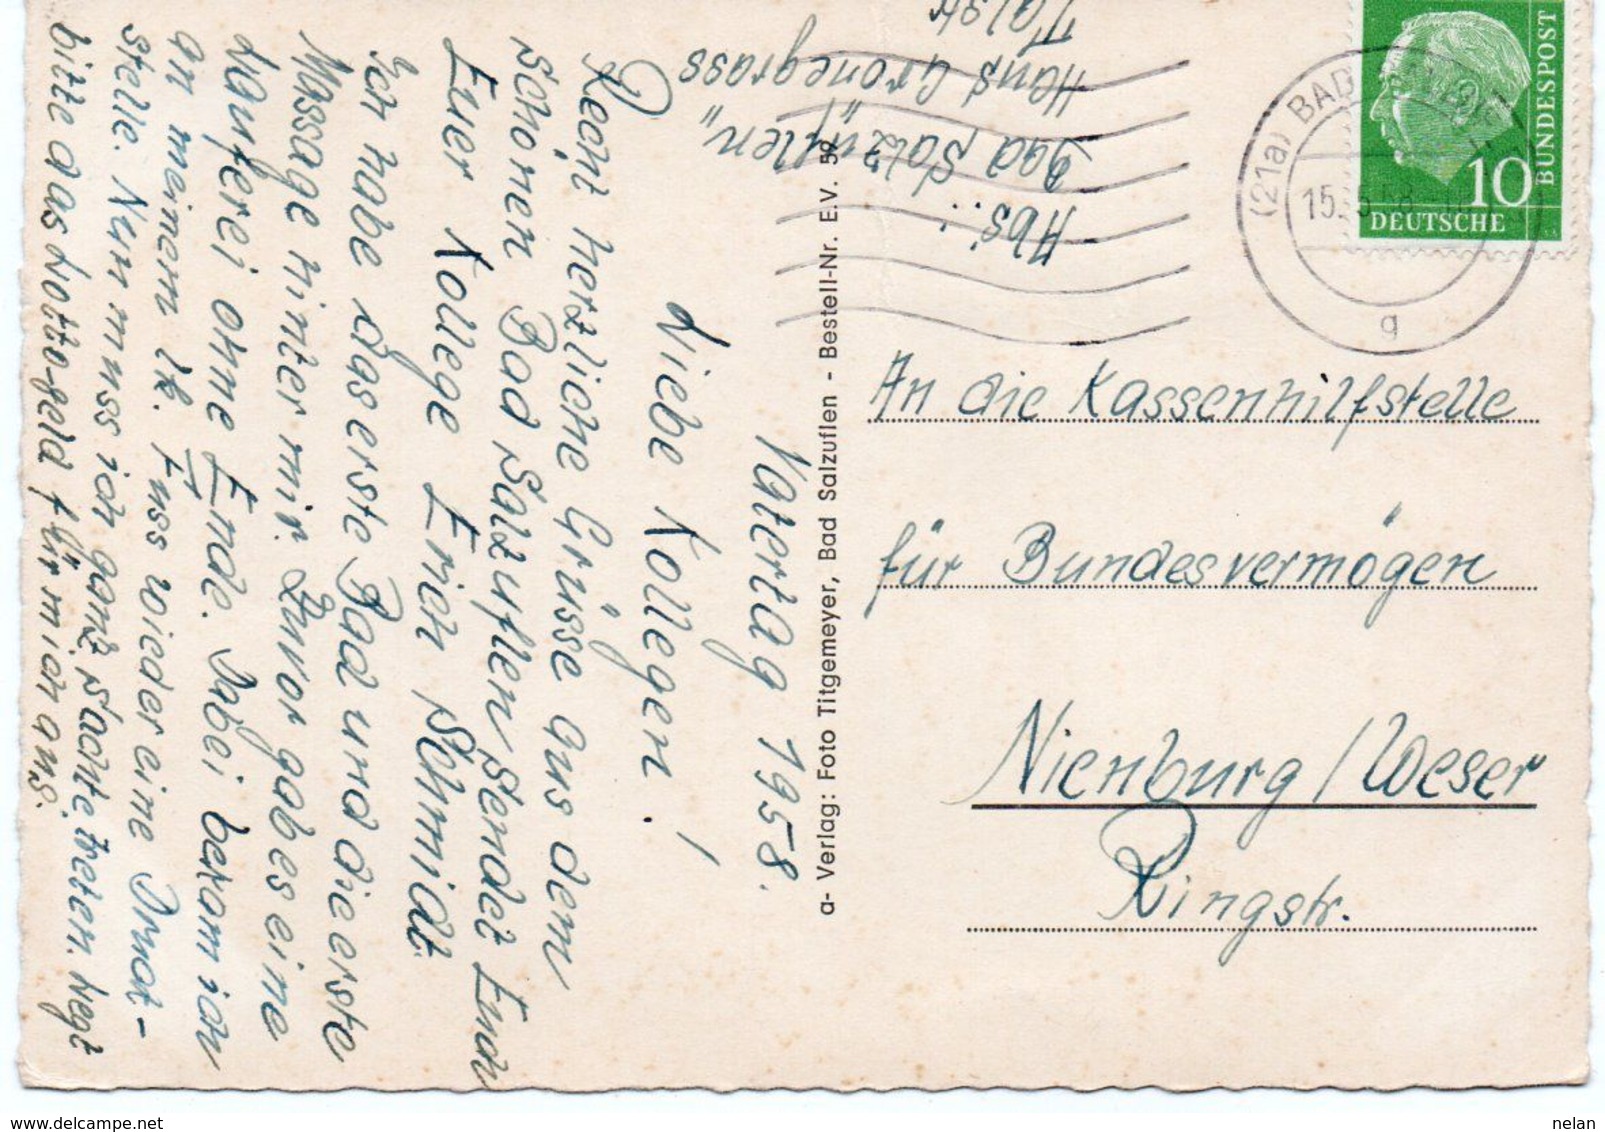 Vatertag 1958.
Liebe Kollegen!
Recht herzliche Grüsse aus dem
schönen Bad Salzuflen sendet Euch
Euer Kollege Erich Schmidt
Ich habe das erste Bad und die erste
Massage hinter mir. Zuvor gab es eine
Lauferei ohne Ende. Dabei bekam ich
an meinem lk. Fuss wieder eine Druck-
stelle. Nun muss ich ganz sachte treten. Legt
bitte das Lotto-geld für mich aus.
Abs.:
Bad Salzuflen
Hans Gronegrass
Talstr
a- Verlag: Foto Titgemeyer, Bad Salzuflen - Bestell-Nr. E.V. 59
(21a) BAD
15. 5.58
g
10
DEUTSCHE
BUNDESPOST
An die Kassenhilfstelle
für Bundesvermögen
Nienburg/Weser
Ringstr.
delcampe.net
nelan